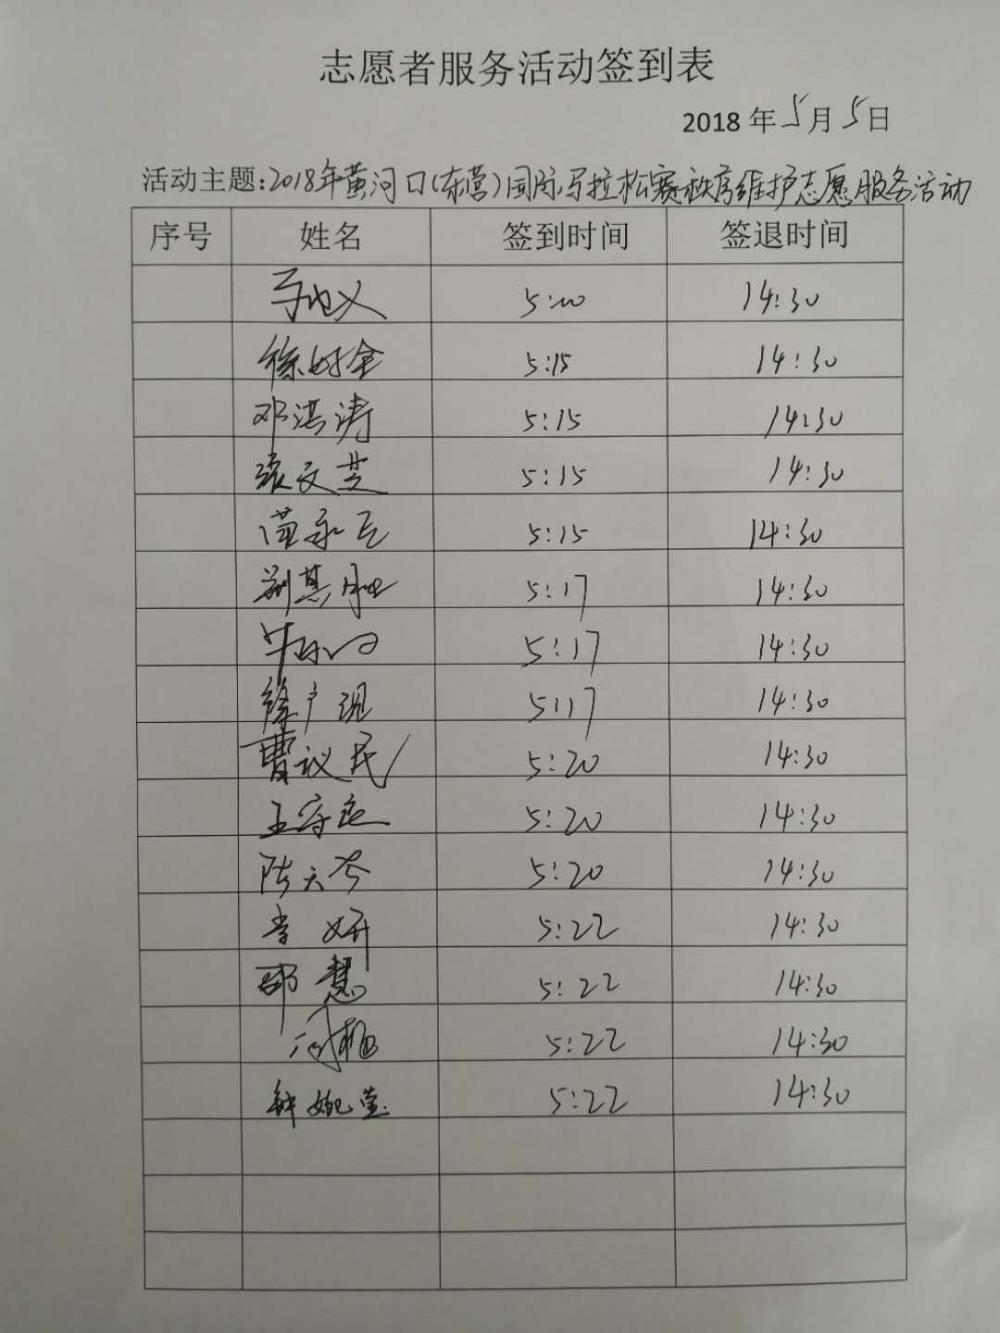 志愿者服务活动签到表
2018年5月5日
活动主题:2018年黄河口(东营)国际马拉松赛秩序维护志愿服务活动
序号 姓名 签到时间 签退时间
5:10 14:30
徐好全 5:15 14:30
邓洪涛 5:15 14:30
张文芝 5:15 14:30
5:15 14:30
5:17 14:30
5:17 14:30
徐广现 5:17 14:30
曹议民 5:20 14:30
王守臣 5:20 14:30
陈天芩 5:20 14:30
李妍 5:22 14:30
邵慧 5:22 14:30
5:22 14:30
钟婉莹 5:22 14:30